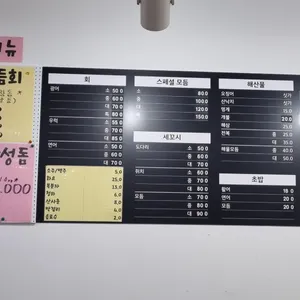 뉴
듬회
성듬
.000
회
광어 소 50 0
중 60 0
대 70 0
특 80 0
우럭 소 55 0
중 70 0
대 85 0
연어 소 50 0
중 60 0
대 70 0
소주/맥주 5.0
화요 25.0
복분자 13.0
청하 6.0
산사춘 8.0
막걸리 4.0
음료수 2.0
스페셜 모듬
소 80 0
중 100 0
대 120 0
특 150 0
세꼬시
도다리 소 50 0
중 70 0
대 90 0
쥐치 소 60 0
중 70 0
대 80 0
모듬 소 70 0
중 80 0
대 90 0
해산물
오징어 싯가
산낙지 싯가
멍게 15.0
개불 20 0
해삼 25.0
전복 중 35.0
대 50.0
해물모듬 중 35.0
대 50.0
초밥
활어 18 0
연어 20 0
모듬 20 0